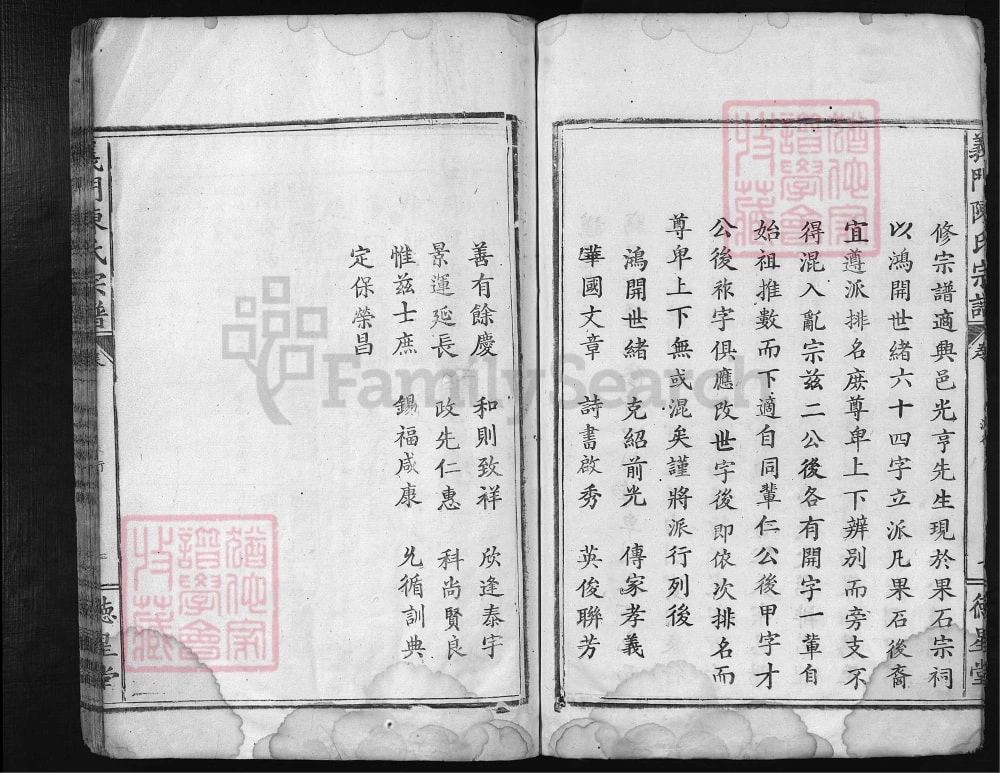 義門陳氏宗譜
卷
德星堂
修宗譜適興邑光亨先生現於果石宗祠
以鴻開世緒六十四字立派凡果石後裔
宜遵派排名庶尊卑上下辨別而旁支不
得混入亂宗兹二公後各有開字一輩自
始祖推數而下適自同輩仁公後甲字才
公後祢字俱應改世字後即依次排名而
尊卑上下無或混矣謹將派行列後
鴻開世緒 克紹前光 傳家孝義
華國文章 詩書啟秀 英俊聯芳
善有餘慶 和則致祥 欣逢泰宇
景運延長 政先仁惠 科尚賢良
惟兹士庶 錫福咸康 允循訓典
定保榮昌
義門陳氏宗譜
卷
德星堂
猶他家
譜學會
收藏
猶他家
譜學會
收藏
FamilySearch